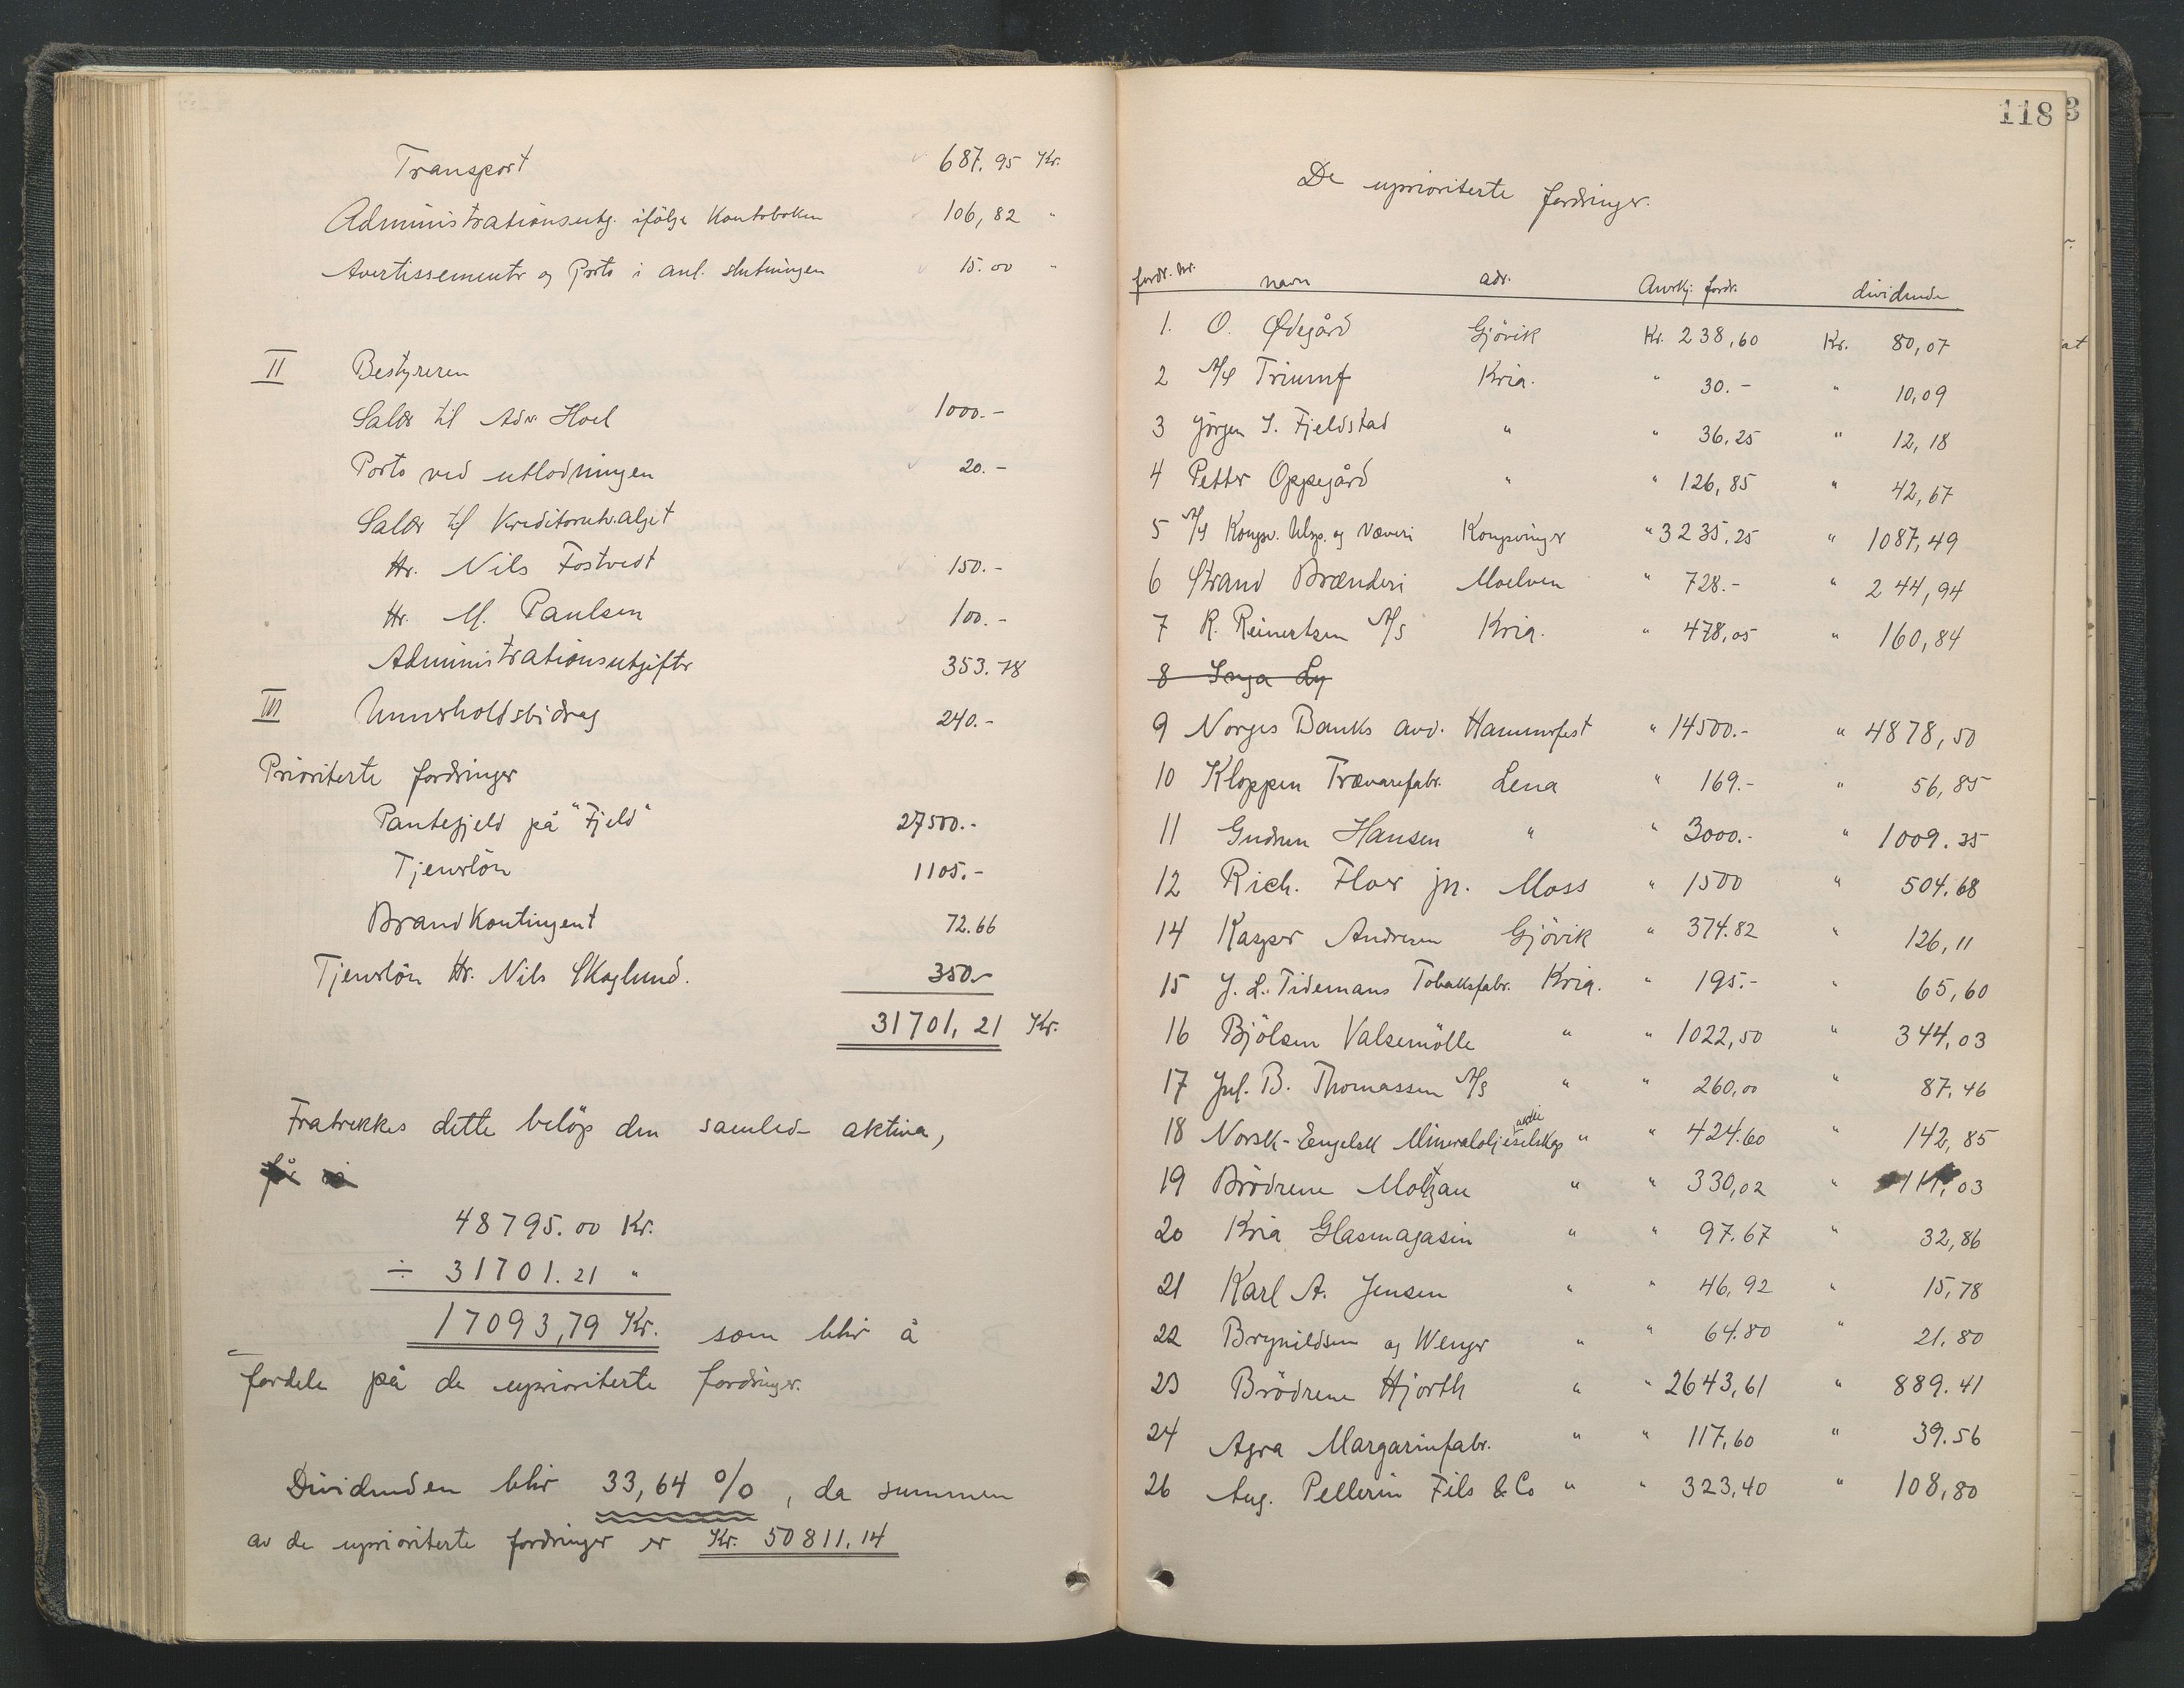 Transport 687.95 Kr.
Administrationsutg. ifölge Kontoboken 106,82 "
Avertissementer og Porto i anl. slutningen 15.00 "
II Bestyreren
Salær til Adv. Hoel 1000.-
Porto ved utlodningen 20.-
Salær til Kreditorutvalget
Hr. Nils Fostvedt 150.-
Hr. M. Paulsen 100.-
Administrationsutgifter 353.78
III Unnerholdsbidrag 240.-
Prioriterte fordringer
Pantegjeld på "Fjeld" 27500.-
Tjenerlön 1105.-
Brandkontingent 72.66
Tjenerlön Hr. Nils Skoglund. 350.-
31701,21 Kr.
Fratrekkes dette belöp den samlede aktiva,
får vi
48795.00 Kr.
÷ 31701.21 "
17093,79 Kr. som blir å
fordele på de uprioriterte fordringer.
Dividenden blir 33,64 %, da summen
av de uprioriterte fordringer er Kr. 50811.14
118
De uprioriterte fordringer.
fordr. nr. navn adr. Anerkj. fordr. dividende
1. O. Ødegård Gjövik Kr. 238,60 Kr. 80,07
2 A/S Triumf Kria. " 30.- " 10,09
3 Jörgen S. Fjeldstad " " 36,25 " 12,18
4 Petter Oppegård " " 126,85 " 42,67
5 A/S Kongsv. Ulsp. og Væveri Kongsvinger " 3235,25 " 1087,49
6 Strand Brænderi Moelven " 728.- " 244,94
7 R. Reinertsen A/S Kria. " 478,05 " 160,84
8 Inga Ly
9 Norges Banks avd. Hammerfest " 14500.- " 4878,50
10 Kloppen Trævarefabr. Lena " 169.- " 56,85
11 Gudrun Hansen " " 3000.- " 1009.35
12 Rich. Floer jn. Moss " 1500 " 504.68
14 Kasper Andresen Gjövik " 374.82 " 126,11
15 J. L. Tidemans Tobaksfabr. Kria. " 195.- " 65,60
16 Bjölsen Valsemölle " " 1022,50 " 344,03
17 Jul. B. Thomassen A/S " " 260,00 " 87,46
18 Norsk-Engelsk Mineraloljeaktieselskap " " 424.60 " 142,85
19 Brödrene Moltzau " " 330,02 " 111,03
20 Kria Glasmagasin " " 97.67 " 32,86
21 Karl A. Jensen " " 46,92 " 15,78
22 Brynildsen og Wenger " " 64.80 " 21.80
23 Brödrene Hjorth " " 2643,61 " 889.41
24 Agra Margarinfabr. " " 117,60 " 39.56
26 Aug. Pellerin Fils & Co " " 323,40 " 108,80